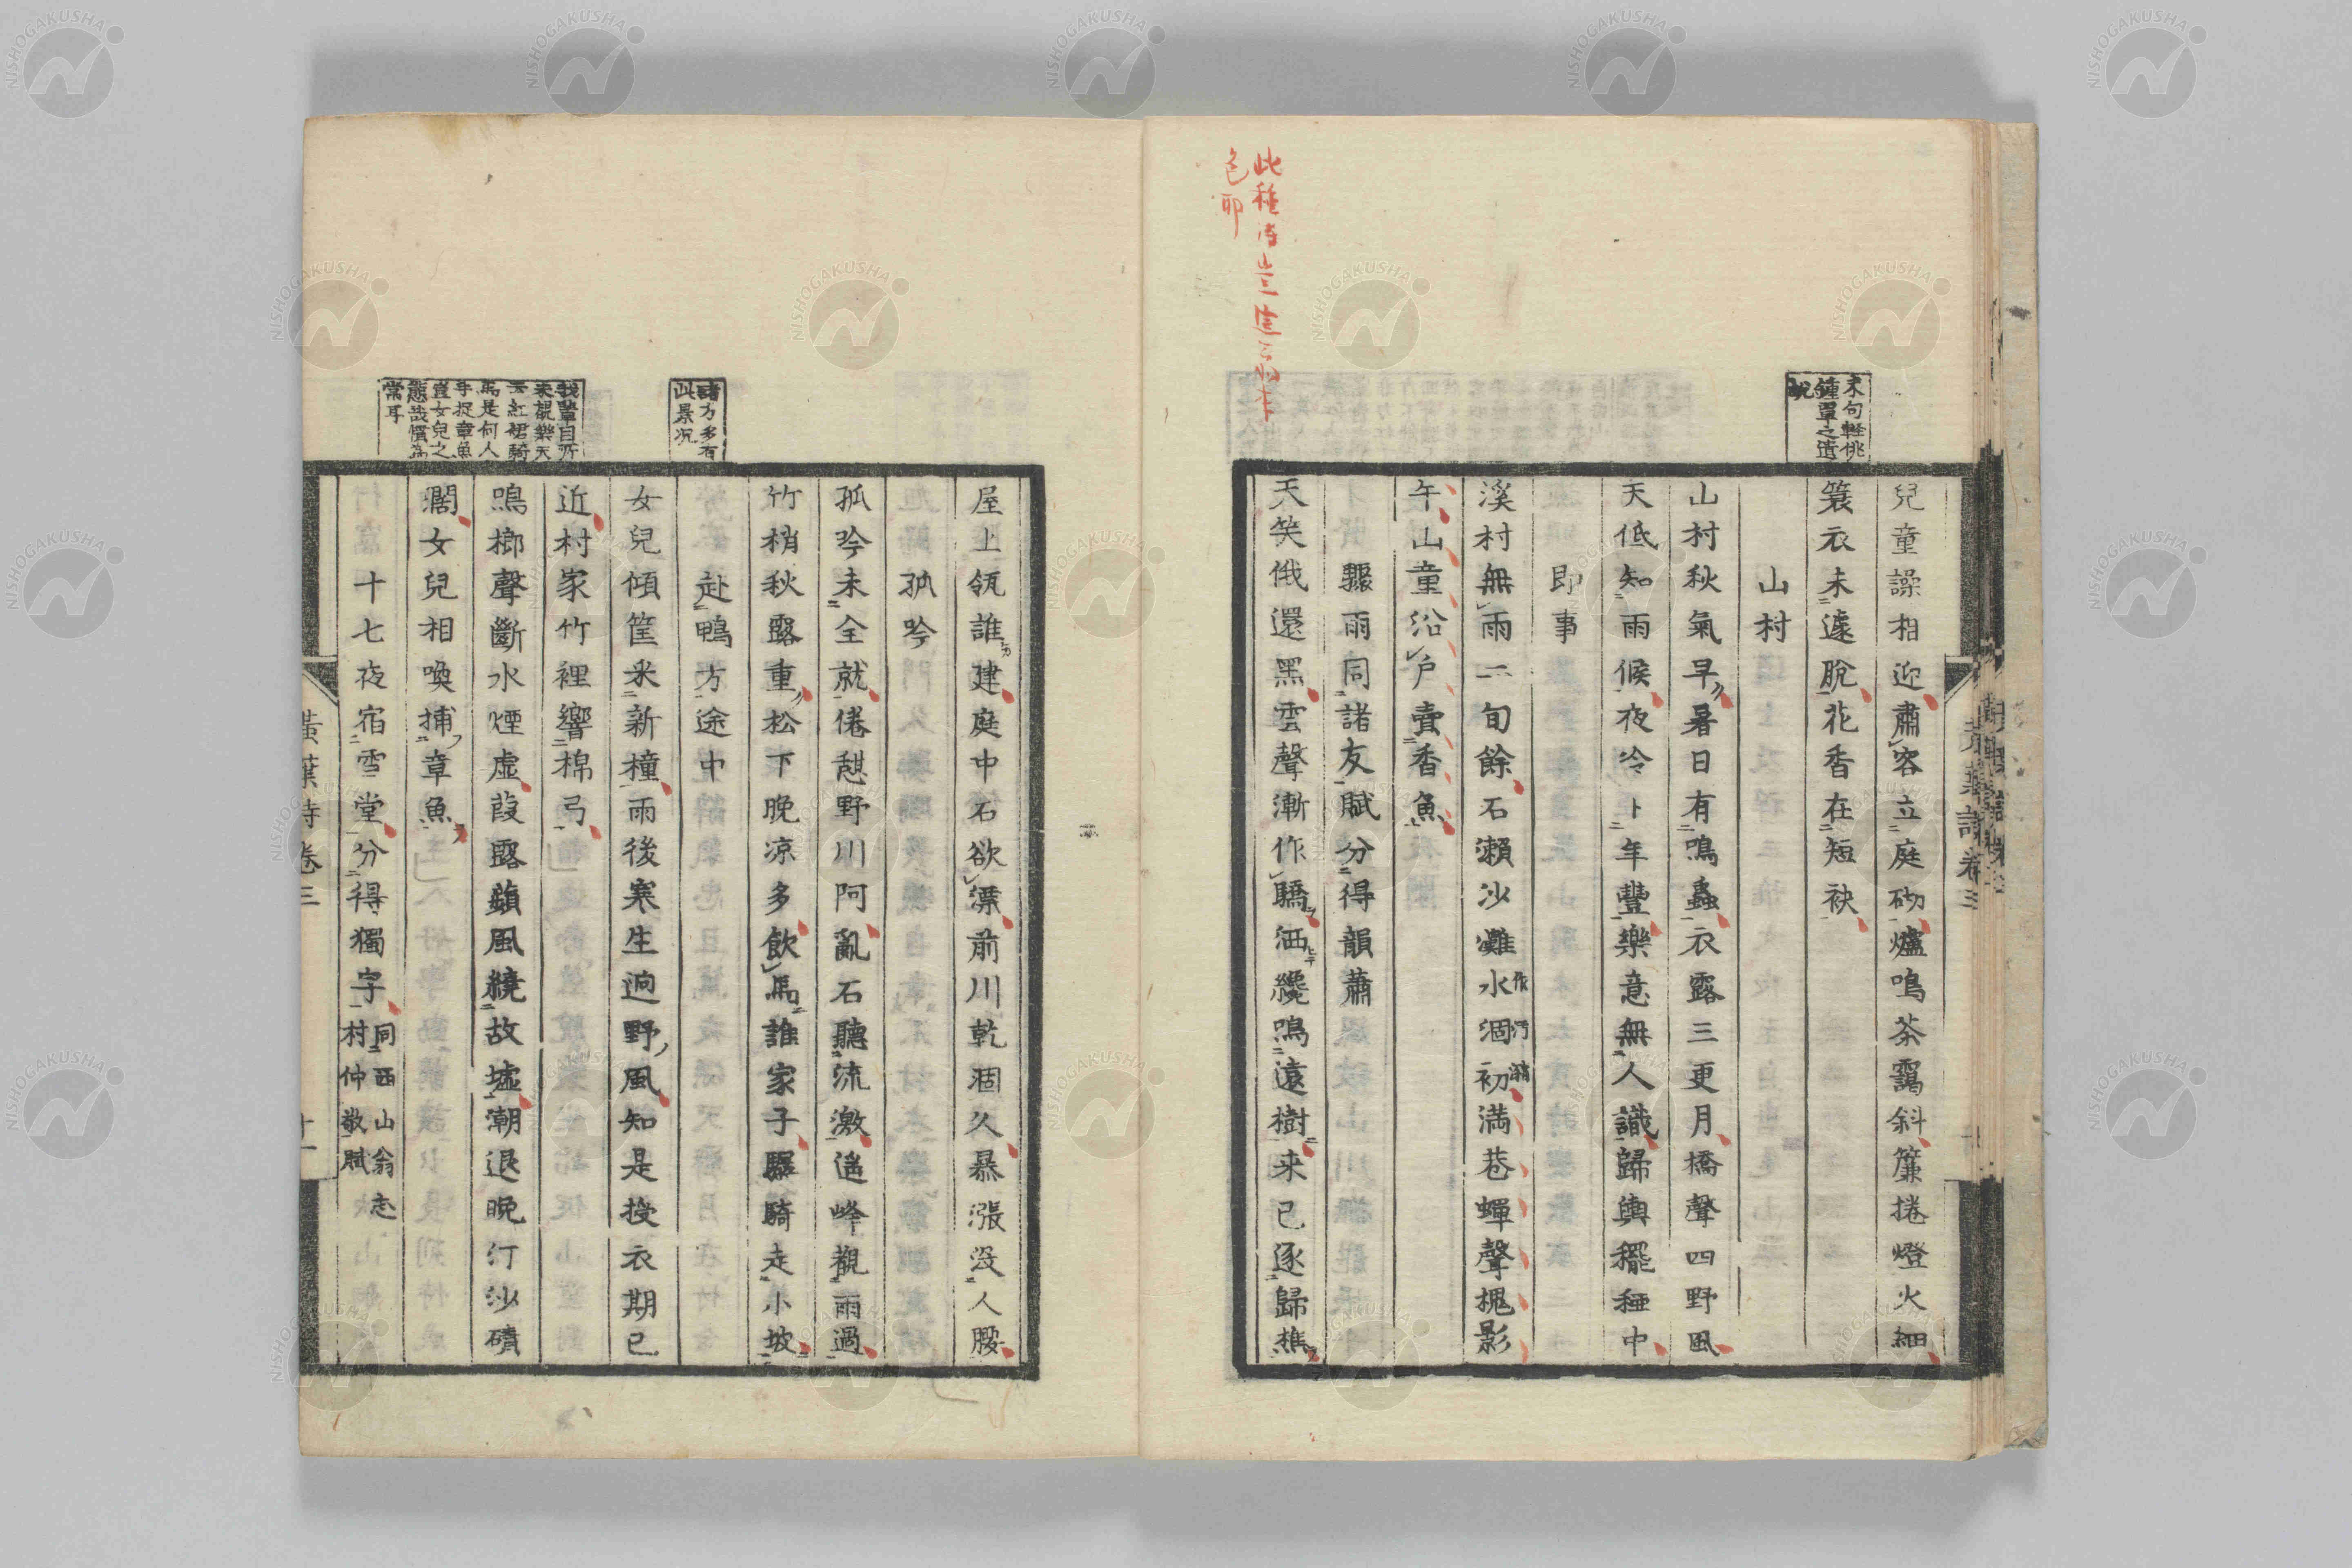 末句輕佻
鍾覃之遺
兒童譟相迎肅容立庭砌爐鳴茶靄斜簾捲燈火細
簑衣未遑脫花香在短袂
山村
山村秋氣早暑日有鳴蟲衣露三更月橋聲四野風
天低知雨候夜冷卜年豐樂意無人識歸輿䆉稏中
即事
溪村無雨二旬餘石瀨沙灘水涸初滿巷蟬聲槐影
午山童沿戶賣香魚
驟雨同諸友賦分得韻蕭
天笑俄還黑雲聲漸作驕洒纔鳴遠樹来已逐歸樵
黃葉詩卷三
諸方多有
此景況
我輩自所
来視樂天
云紅裙騎
馬是何人
手捉章魚
豈女兒之
態哉慣為
常耳
屋上瓴誰建庭中石欲漂前川乾涸久暴漲沒人腰
孤吟
孤吟未全就倦憩野川阿亂石聽流激遙峰觀雨過
竹梢秋露重松下晚凉多飲馬誰家子驟騎走小坡
赴鴨方途中
女兒傾筐釆新橦雨後寒生逈野風知是授衣期已
近村家竹裡響棉弓
鳴榔聲斷水煙虛葭露蘋風繞故墟潮退晚汀沙磧
濶女兒相喚捕章魚
十七夜宿雪堂分得獨字
同西山翁志
村仲敬賦
黃葉詩卷三
十一
NISHOGAKUSHA